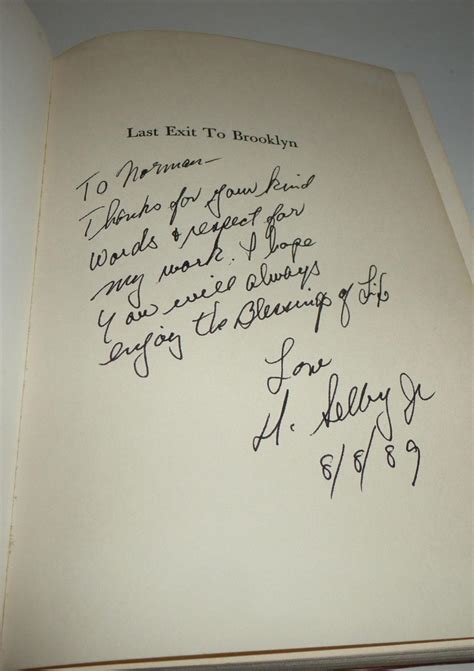 Last Exit To Brooklyn
To Norman—
Thanks for your kind
words & respect for
my work. I hope
you will always
enjoy the Blessings of Life
Love
H. Selby Jr
8/8/89